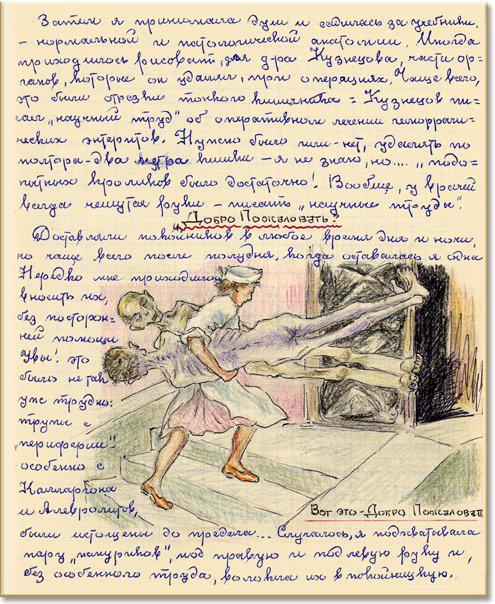 Затем я принимала душ и садилась за учебники
- нормальной и патологической анатомии. Иногда
приходилось рисовать, для д-ра Кузнецова, части ор-
ганов, которые он удалял, при операциях. Чаще всего,
это были отрезки тонкого кишечника = Кузнецов пи-
сал „научный труд" об оперативном лечении геморраги-
ческих энтеритов. Нужно было или - нет, удалять по
полтора-два метра кишки - я не знаю, но.... „подо-
пытных кроликов было достаточно! Вообще, у врачей
всегда чешутся руки - писать „научные труды".
„Добро Пожаловать!"
Доставляли покойников в любое время дня и ночи,
но чаще всего после полудня, когда оставалась я одна
Нередко мне приходилось
вносить их,
без посторон-
ней помощи
Увы! это
было не так
уж трудно:
трупы с
„периферии"-
особенно с
Каларгона
и Алевролитов,
были истощены до предела... Случалось, я подхватывала
пару „жмуриков", под правую и под левую руку и,
без особенного труда, волокла их в покойницкую.
Вот это - Добро Пожаловать